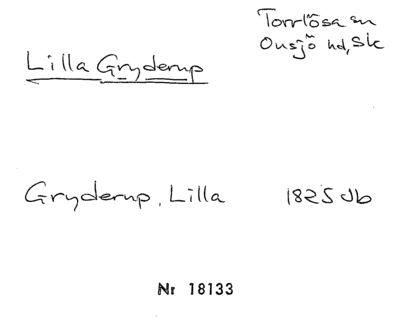 Torrlösa sn
Onsjö hd, Sk
Lilla Gryderup
Gryderup, Lilla 1825 Jb
Nr 18133